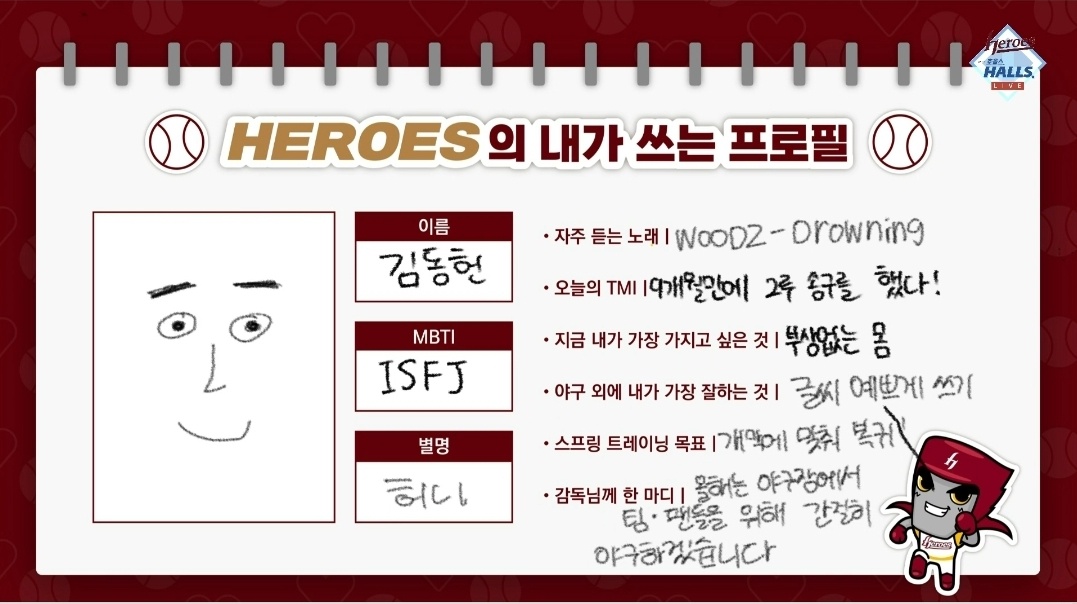 Heroes
호올스
HALLS
LIVE
HEROES의 내가 쓰는 프로필
이름
김동헌
MBTI
ISFJ
별명
허니
• 자주 듣는 노래 | WOODZ - Drowning
• 오늘의 TMI | 9개월만에 2루 송구를 했다!
• 지금 내가 가장 가지고 싶은 것 | 부상없는 몸
• 야구 외에 내가 가장 잘하는 것 | 글씨 예쁘게 쓰기
• 스프링 트레이닝 목표 | 개막에 맞춰 복귀
• 감독님께 한 마디 | 올해는 야구장에서
팀·팬들을 위해 간절히
야구하겠습니다
Heroes